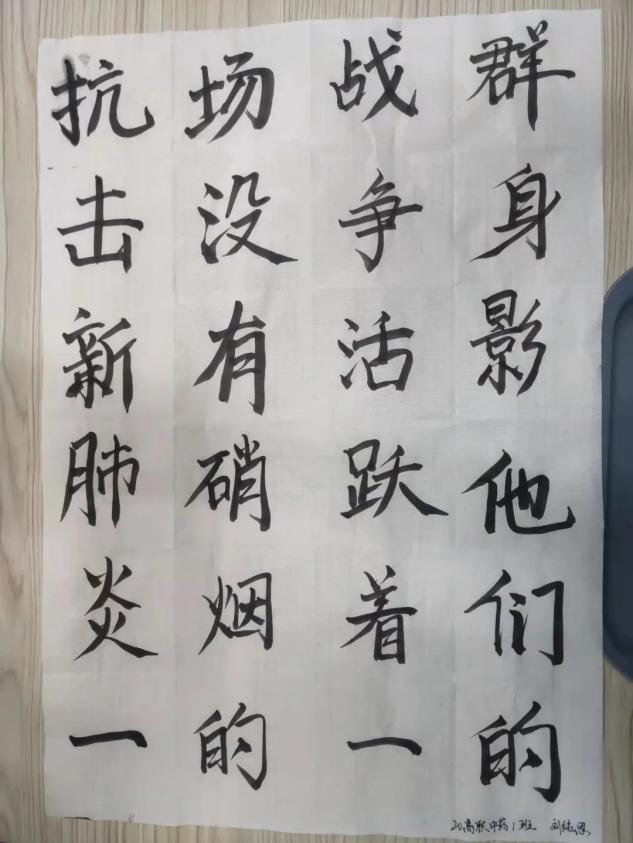 抗击新肺炎一
场没有硝烟的
战争活跃着一
群身影他们的
20高职中药1班